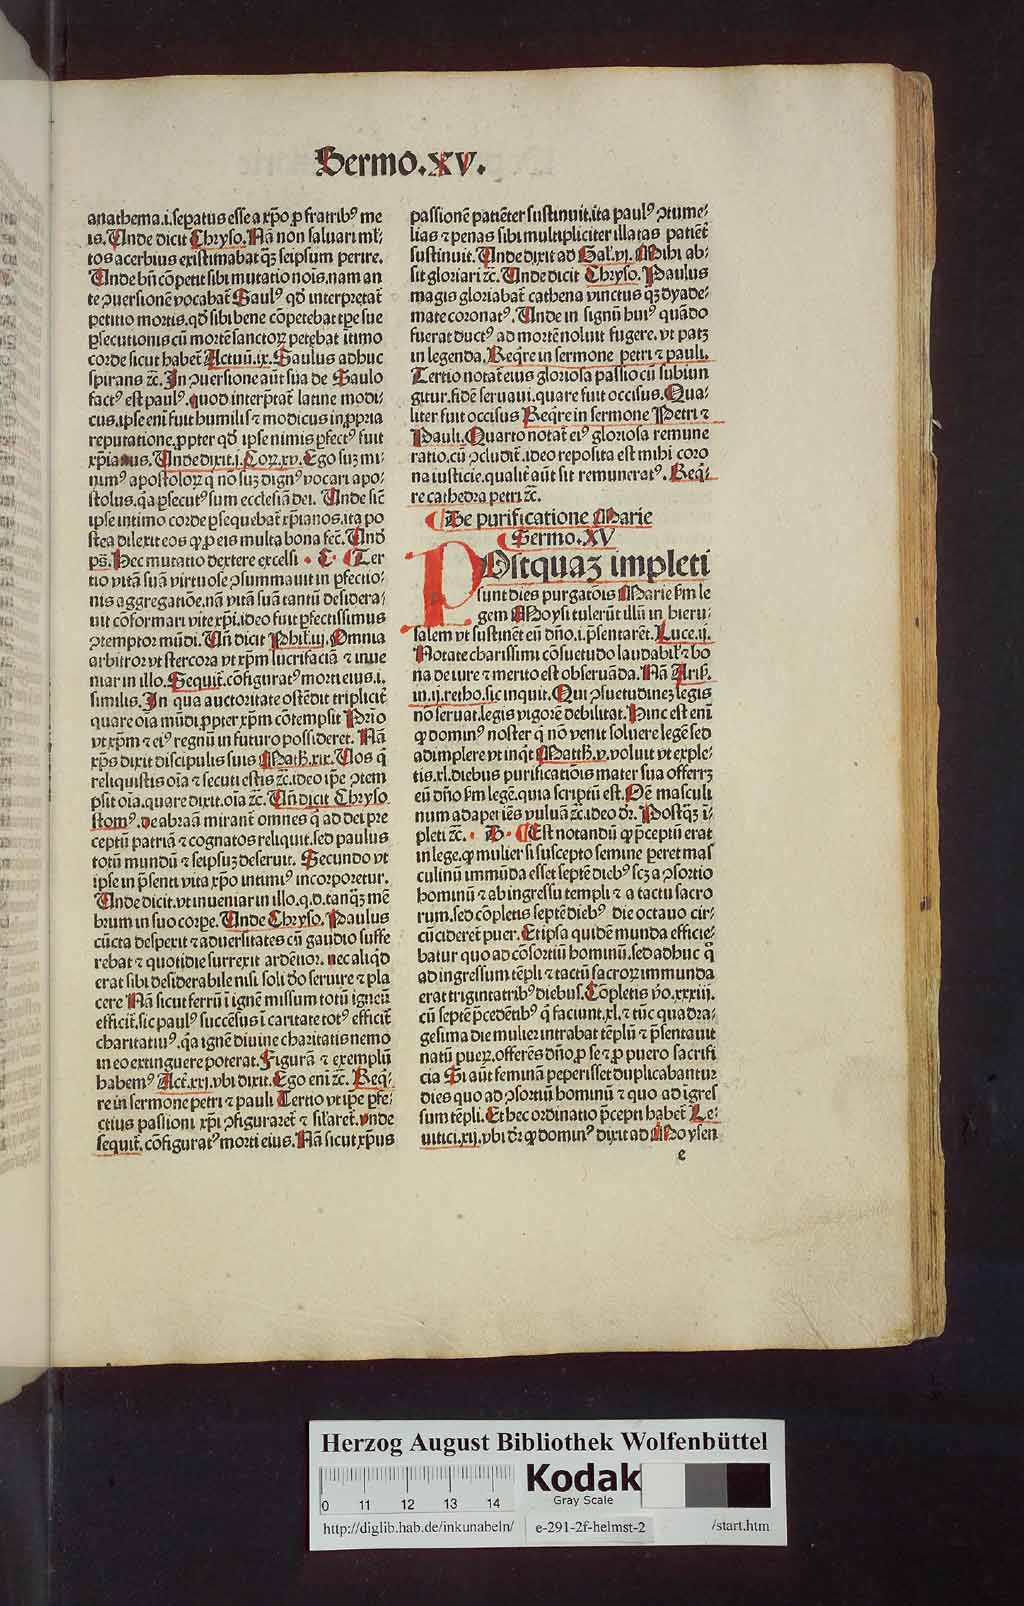 Sermo.XV.
anathema.i.sepatus esse a xp̄o ꝓ fratribꝰ me
is. Unde dicit Chryso. Nā non saluari ml̄-
tos acerbius existimabat qȝ seipsum perire.
Unde bn̄ cōpetit sibi mutatio nois. nam an
te ꝯuersionē vocabat̄ Saulꝰ qd̄ interpretat̄
petitio mortis. qd̄ sibi bene cōpetebat tꝑe sue
ꝑsecutionis cū mortē sanctoꝝ petebat itimo
corde sicut habet̄ Actuū.ix. Saulus adhuc
spirans ⁊c. In ꝯuersione aūt sua de Saulo
factꝰ est paulꝰ. quod interp̄tat̄ latine modi-
cus. ipse eni fuit humilis ⁊ modicus in ꝓpria
reputatione. ꝓpter qd̄ ipse nimis ꝑfectꝰ fuit
xp̄ianus. Unde dixit.i. Coꝝ.xv. Ego suꝫ mi-
nimꝰ apostoloꝝ q no suꝫ dignꝰ vocari apo-
stolus. qa ꝑsecutꝰ sum ecclesiā dei. Unde sic̄
ipse intimo corde ꝑsequebat̄ xp̄ianos. ita po
stea dilexit eos ꝙ ꝓ eis multa bona fec̄. Und̄
ps̄. Hec mutatio dextere excelsi · C · Ter
tio vitā suā virtuose ꝯsummauit in ꝑfectio-
nis aggregatiōe. nā vitā suā tantū desidera-
uit cōformari vite xp̄i. ideo fuit ꝑfectissimus
ꝯtemptor mūdi. Un̄ dicit Phil̄.iij. Omnia
arbitror vt stercora vt xp̄m lucrifaciā ⁊ inue
niar in illo. Sequit̄. cōfiguratꝰ morti eius.i.
similis. In qua auctoritate ostēdit triplicit̄
quare oīa mūdi ꝓpter xp̄m cōtempsit Prīo
vt xp̄m ⁊ eiꝰ regnū in futuro possideret. Nā
xp̄s dixit discipulis suis Math.xix. Vos q̄
reliquistis oīa ⁊ secuti estis ⁊c. ideo ip̄e ꝯtem
psit oīa. quare dixit. oīa ⁊c. Un̄ dicit Chryso
stomꝰ. de abraā mirant̄ omnes q̄ ad dei pre
ceptū patriā ⁊ cognatos reliquit. sed paulus
totū mundū ⁊ seipsuꝫ deseruit. Secundo vt
ipse in p̄senti vita xp̄o intimiꝰ incorporetur.
Unde dicit. vt inueniar in illo. q.d. tanqȝ mē
brum in suo corpe. Unde Chryso. Paulus
cūcta despexit ⁊ aduersitates cū gaudio suffe
rebat ⁊ quotidie surrexit ardētior. nec aliqd̄
erat sibi desiderabile nisi. soli deo seruire ⁊ pla
cere Nā sicut ferrū ī ignē missum totū igneū
efficit̄. sic paulꝰ succēsus ī caritate totꝰ efficit̄
charitatiuꝰ. qa ignē diuine charitatis nemo
in eo extinguere poterat. Figurā ⁊ exemplū
habemꝰ Act.xxj. vbi dixit. Ego eni ⁊c. Req̄-
re in sermone petri ⁊ pauli Tertio vt ip̄e ꝑfe-
ctius passioni xp̄i ꝯfiguraret̄ ⁊ sil̄aret̄. vnde
sequit̄. cōfiguratꝰ morti eius. Nā sicut xp̄us
passionē patiēter sustinuit. ita paulꝰ ꝯtume-
lias ⁊ penas sibi multipliciter illatas patiēt̄
sustinuit. Unde dixit ad Gal̄.vj. Mihi ab-
sit gloriari ⁊c. Unde dicit Chryso. Paulus
magis gloriabat̄ cathena vinctus qȝ dyade-
mate coronatꝰ. Unde in signū huiꝰ quādo
fuerat ductꝰ ad mortē noluit fugere. vt patꝫ
in legenda. Reqre in sermone petri ⁊ pauli.
Tertio notat̄ eius gloriosa passio cū subiun
gitur. fidē seruaui. quare fuit occisus. Qua-
liter fuit occisus Reqre in sermone Petri ⁊
Pauli. Quarto notat̄ eiꝰ gloriosa remune
ratio. cū ꝯcludit̄. ideo reposita est mihi coro
na iusticie. qualit̄ aūt sit remuneratꝰ. Req̄-
re cathedra petri ⁊c.
De purificatione Marie
Sermo.XV
POstquaꝫ impleti
sunt dies purgatōis Marie ẜm le
gem Moysi tulerūt illū in hieru-
salem vt sustinēt eū dn̄o.i. p̄sentarēt. Luce.ij.
Notate charissimi cōsuetudo laudabil̄ ⁊ bo
na de iure ⁊ merito est obseruāda. Nā Aris̄.
in.ij. retho. sic inquit. Qui ꝯsuetudinez legis
nō seruat. legis vigorē debilitat. Hinc est eni
ꝙ dominꝰ noster q̄ nō venit soluere legē sed
adimplere vt inqt̄ Matth.v. voluit vt exple-
tis.xl. diebus purificatiōis mater sua offerrꝫ
eū dn̄o ẜm legē. quia scriptū est. Oē masculi
num adapei iēs vuluā ⁊c. ideo dr̄. Postqȝ ī-
pleti ⁊c. · B · Est notandū ꝙ p̄ceptū erat
in lege. ꝙ mulier si suscepto semine peret mas
culinū immūda esset septē diebꝰ scȝ a ꝯsortio
hominū ⁊ ab ingressu templi ⁊ a tactu sacro
rum. sed cōpletis septē diebꝰ die octauo cir-
cūcideret puer. Et ipsa quidē munda efficie-
batur quo ad cōsortiū hominū. sed adhuc qͦ
ad ingressum tēpli ⁊ tactū sacroꝝ immunda
erat triginta tribꝰ diebus. Cōpletis v̄o.xxxiij.
cū septē p̄cedētibꝰ q̄ faciunt.xl. ⁊ tūc quadra-
gesima die mulier intrabat tēplū ⁊ p̄sentauit
natū pueꝝ. offerēs dn̄o ꝓ se ⁊ ꝓ puero sacrifi
cia Si aūt feminā peperisset duplicabantur
dies quo ad ꝯsortiū hominū ⁊ quo ad igres
sum tēpli. Et hec ordinatio p̄cepti habet̄ Le-
uitici.xij. vbi dr̄ ꝙ dominꝰ dixit ad Moysen
e
Herzog August Bibliothek Wolfenbüttel
Kodak
Gray Scale
0 11 12 13 14
http://diglib.hab.de/inkunabeln/ e-291-2f-helmst-2 /start.htm